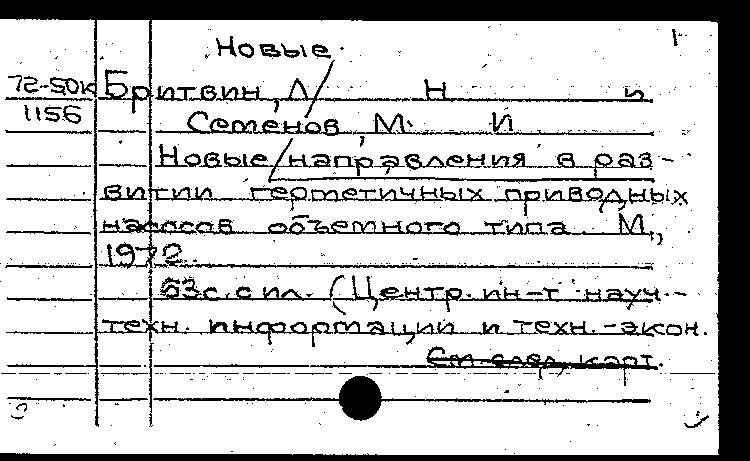 1
Новые
72-50к Бритвин, Л Н и
1156
Семенов, М. И
Новые/направления в раз-
витии герметичных приводных
насосов объемного типа. М.,
1972.
63с. с ил. (Центр. ин-т науч.-
техн. информации и техн.-экон.
См. след. карт.